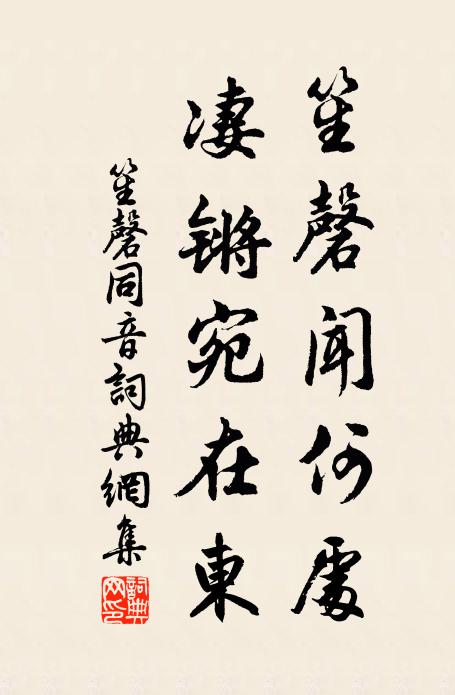 笙磬闻何處
凄锵宛在東
笙磬同音詞典網集
詞典网印